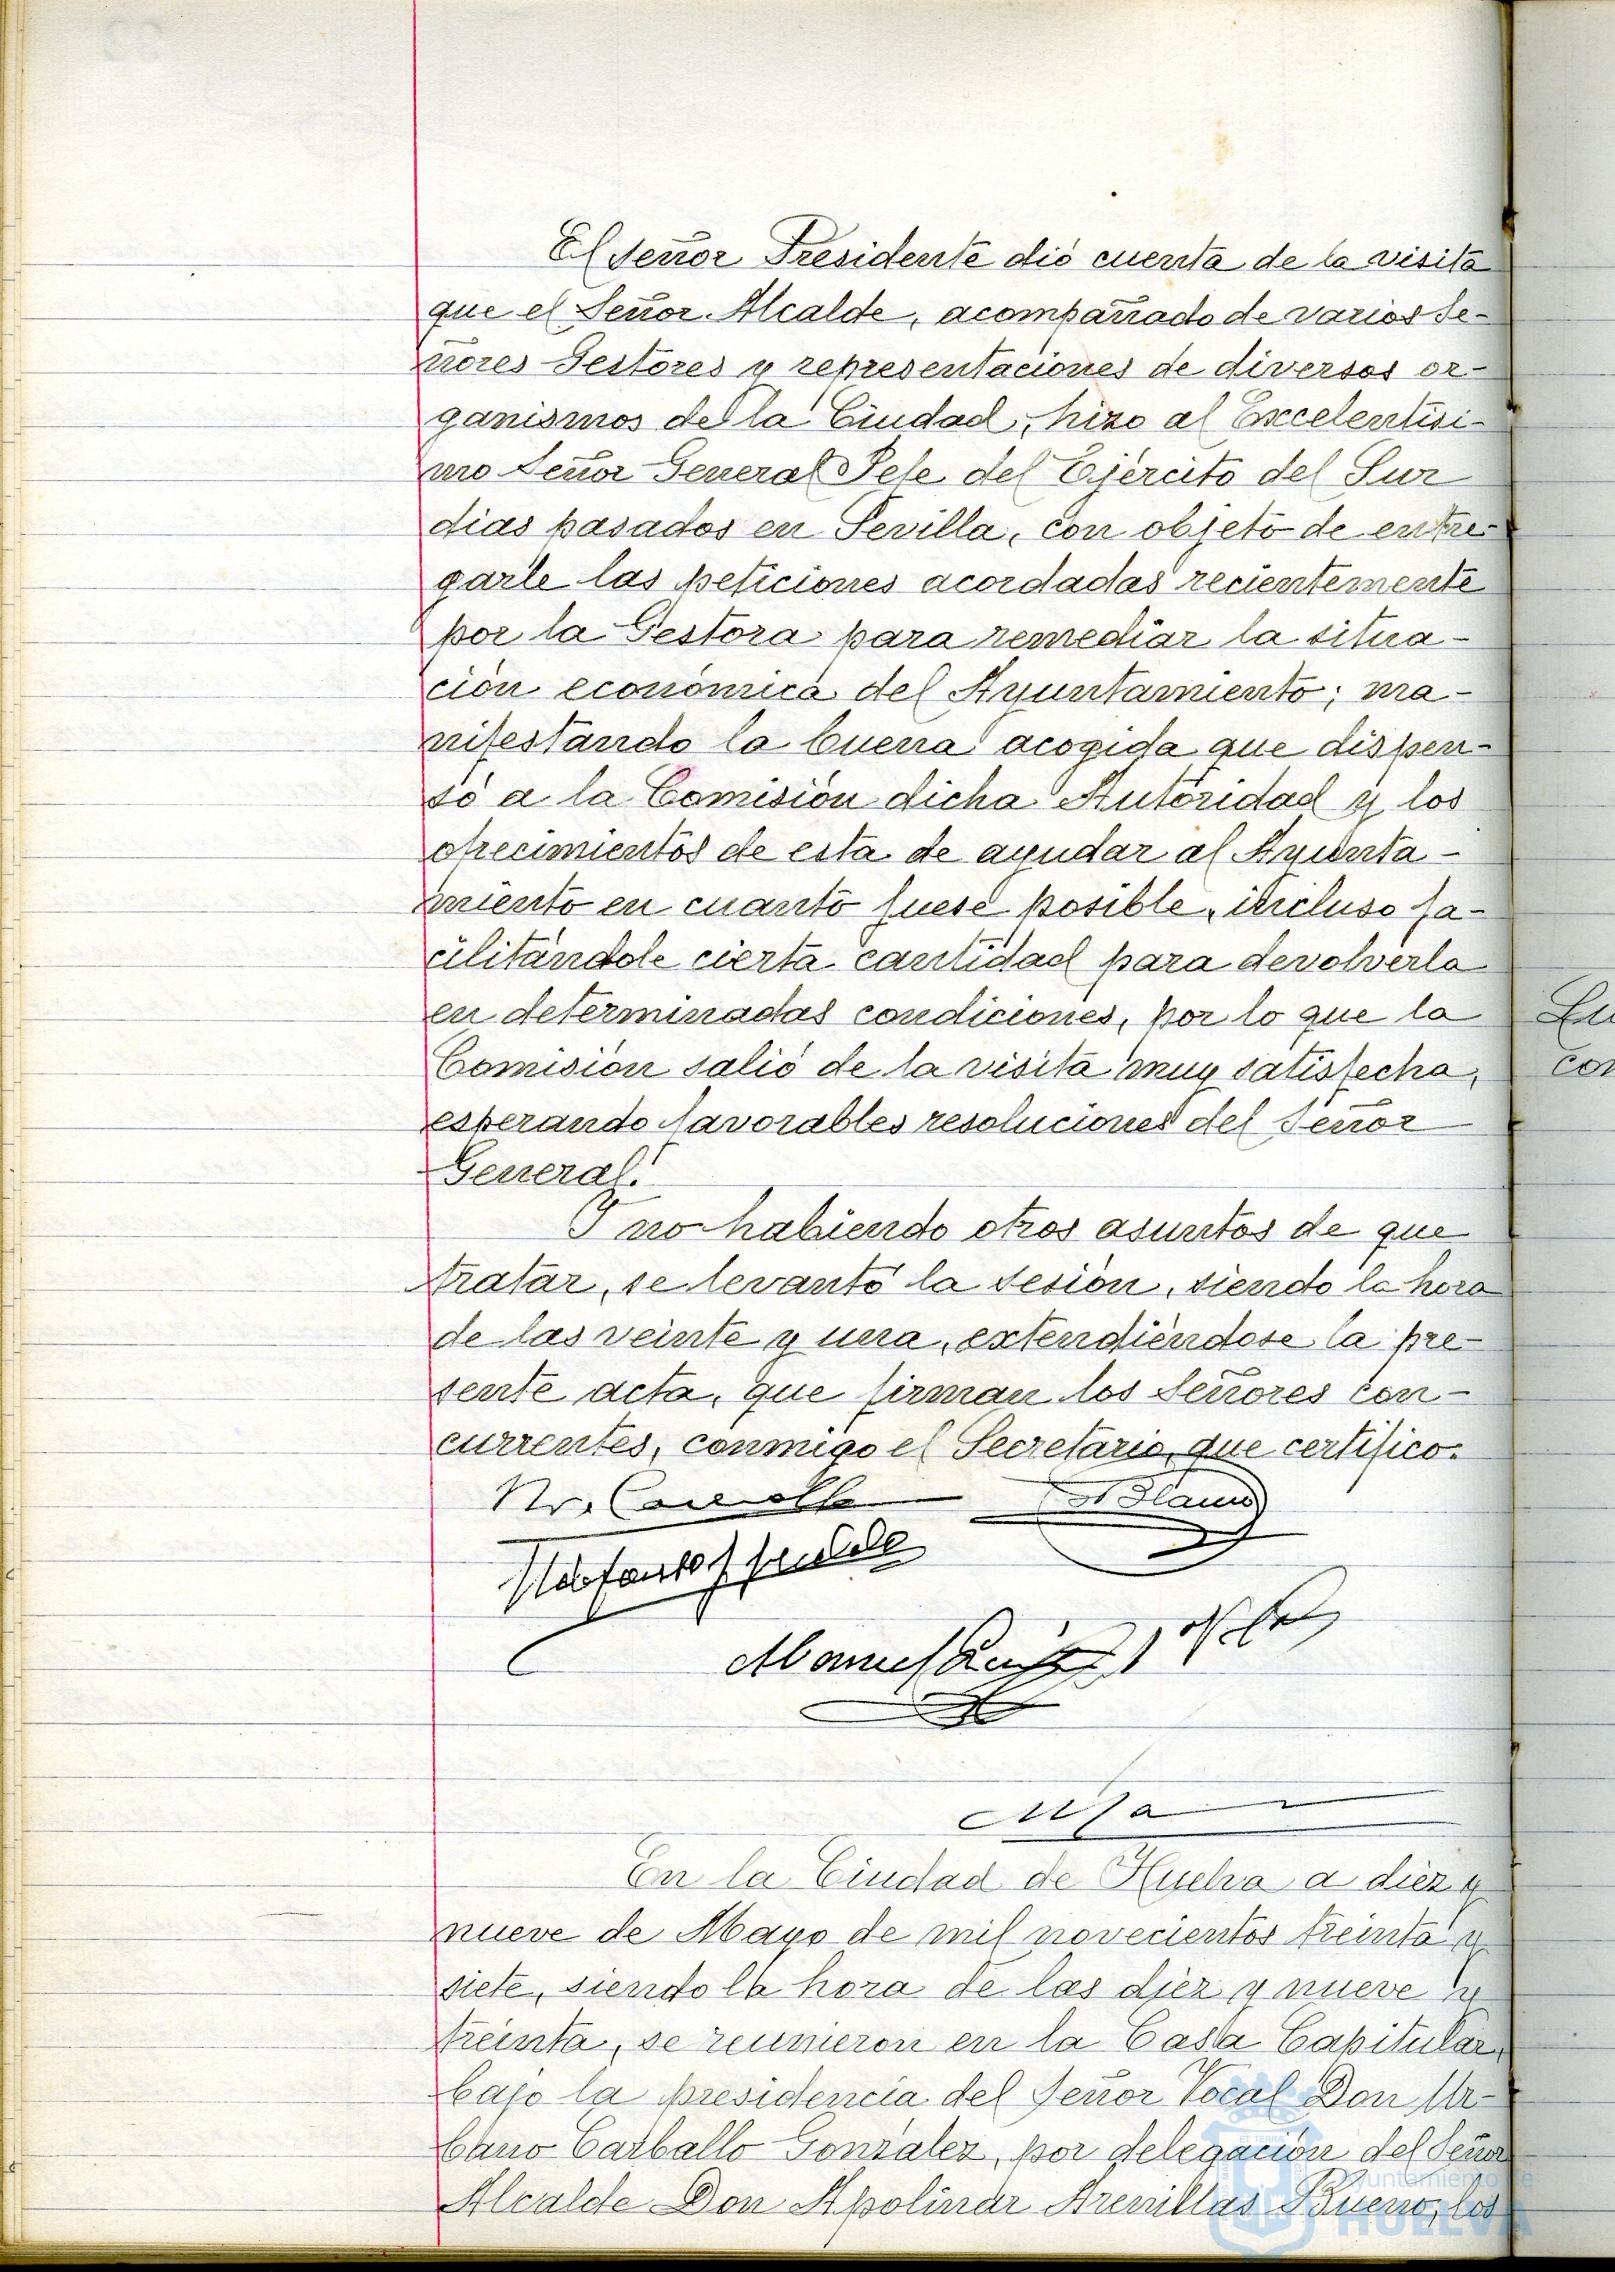 El Señor Presidente dió cuenta de la visita
que el Señor Alcalde, acompañado de varios Se-
ñores Gestores y representaciones de diversos or-
ganismos de la Ciudad, hizo al Excelentísi-
mo Señor General Jefe del Ejército del Sur
dias pasados en Sevilla, con objeto de entre-
garle las peticiones acordadas recientemente
por la Gestora para remediar la situa-
ción económica del Ayuntamiento; ma-
nifestando la buena acogida que dispen-
só a la Comisión dicha Autoridad y los
ofrecimientos de esta de ayudar al Ayunta-
miento en cuanto fuese posible, incluso fa-
cilitándole cierta cantidad para devolverla
en determinadas condiciones, por lo que la
Comisión salió de la visita muy satisfecha,
esperando favorables resoluciones del Señor
General.
Y no habiendo otros asuntos de que
tratar, se levantó la sesión, siendo la hora
de las veinte y una, extendiéndose la pre-
sente acta, que firman los Señores con-
currentes, conmigo el Secretario, que certifico.
Blanco
Manuel
En la Ciudad de Huelva a diez y
nueve de Mayo de mil novecientos treinta y
siete, siendo la hora de las diez y nueve y
treinta, se reunieron en la Casa Capitular,
bajo la presidencia del Señor Vocal Don Ur-
bano Carballo González, por delegación del Señor
Alcalde Don Apolinar Arenillas Bueno, los
Ayuntamiento de
HUELVA